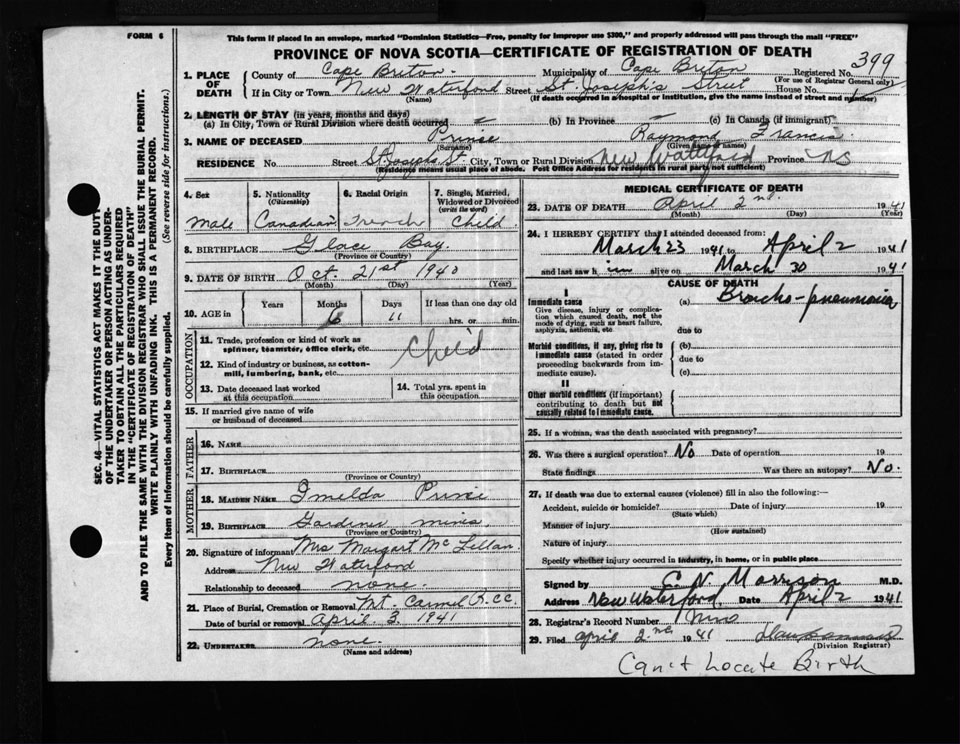 FORM 6
This form if placed in an envelope, marked "Dominion Statistics—Free, penalty for improper use $300," and properly addressed will pass through the mail "FREE"
PROVINCE OF NOVA SCOTIA—CERTIFICATE OF REGISTRATION OF DEATH
SEC. 46—VITAL STATISTICS ACT MAKES IT THE DUTY
OF THE UNDERTAKER OR PERSON ACTING AS UNDER-
TAKER TO OBTAIN ALL THE PARTICULARS REQUIRED
IN THE "CERTIFICATE OF REGISTRATION OF DEATH"
AND TO FILE THE SAME WITH THE DIVISION REGISTRAR WHO SHALL ISSUE THE BURIAL PERMIT.
WRITE PLAINLY WITH UNFADING INK. THIS IS A PERMANENT RECORD.
Every item of information should be carefully supplied. (See reverse side for instructions.)
1. PLACE OF DEATH County of Cape Breton. Municipality of Cape Breton Registered No. 399
(For use of Registrar General only)
If in City or Town New Waterford Street St. Joseph's Street House No.
(Name) (If death occurred in a hospital or institution, give the name instead of street and number)
2. LENGTH OF STAY (in years, months and days)
(a) In City, Town or Rural Division where death occurred (b) In Province (c) In Canada (if immigrant)
3. NAME OF DECEASED Prince Raymond Francis.
(Surname) (Given name or names)
RESIDENCE No. Street St. Josephs St. City, Town or Rural Division New Waterford Province NS
(Residence means usual place of abode. Post Office Address for residents in rural parts not sufficient)
4. Sex Male
5. Nationality (Citizenship) Canadian
6. Racial Origin French
7. Single, Married, Widowed or Divorced (write the word) Child.
8. BIRTHPLACE Glace Bay.
(Province or Country)
9. DATE OF BIRTH Oct. 21st 1940
(Month) (Day) (Year)
10. AGE in Years Months 6 Days 11 If less than one day old hrs. or min.
OCCUPATION
11. Trade, profession or kind of work as spinner, teamster, office clerk, etc. Child
12. Kind of industry or business, as cotton-mill, lumbering, bank, etc.
13. Date deceased last worked at this occupation
14. Total yrs. spent in this occupation
15. If married give name of wife or husband of deceased
FATHER
16. NAME
17. BIRTHPLACE
(Province or Country)
MOTHER
18. MAIDEN NAME Imelda Prince
19. BIRTHPLACE Gardiner mines.
(Province or Country)
20. Signature of informant Mrs Margart McLellan.
Address New Waterford
Relationship to deceased none.
21. Place of Burial, Cremation or Removal Mt. Carmel R.C.C.
Date of burial or removal April. 3. 1941
22. UNDERTAKER none.
(Name and address)
MEDICAL CERTIFICATE OF DEATH
23. DATE OF DEATH April 2nd. 1941
(Month) (Day) (Year)
24. I HEREBY CERTIFY that I attended deceased from:
March 23 1941 to April 2 1941
and last saw h im alive on March 30 1941
CAUSE OF DEATH
I
Immediate cause (a) Broncho-pneumonia
Give disease, injury or complication which caused death, not the mode of dying, such as heart failure, asphyxia, asthenia, etc.
due to
Morbid conditions, if any, giving rise to immediate cause (stated in order proceeding backwards from immediate cause). (b)
due to
(c)
II
Other morbid conditions (if important) contributing to death but not causally related to immediate cause.
25. If a woman, was the death associated with pregnancy?
26. Was there a surgical operation? No Date of operation 19
State findings Was there an autopsy? No.
27. If death was due to external causes (violence) fill in also the following:—
Accident, suicide or homicide? Date of injury 19
(State which)
Manner of injury
(How sustained)
Nature of injury
Specify whether injury occurred in industry, in home, or in public place
Signed by C. N. Morrison M.D.
Address New Waterford. Date April 2 1941
28. Registrar's Record Number
29. Filed april 2nd 1941
(Division Registrar)
Can't Locate Birth